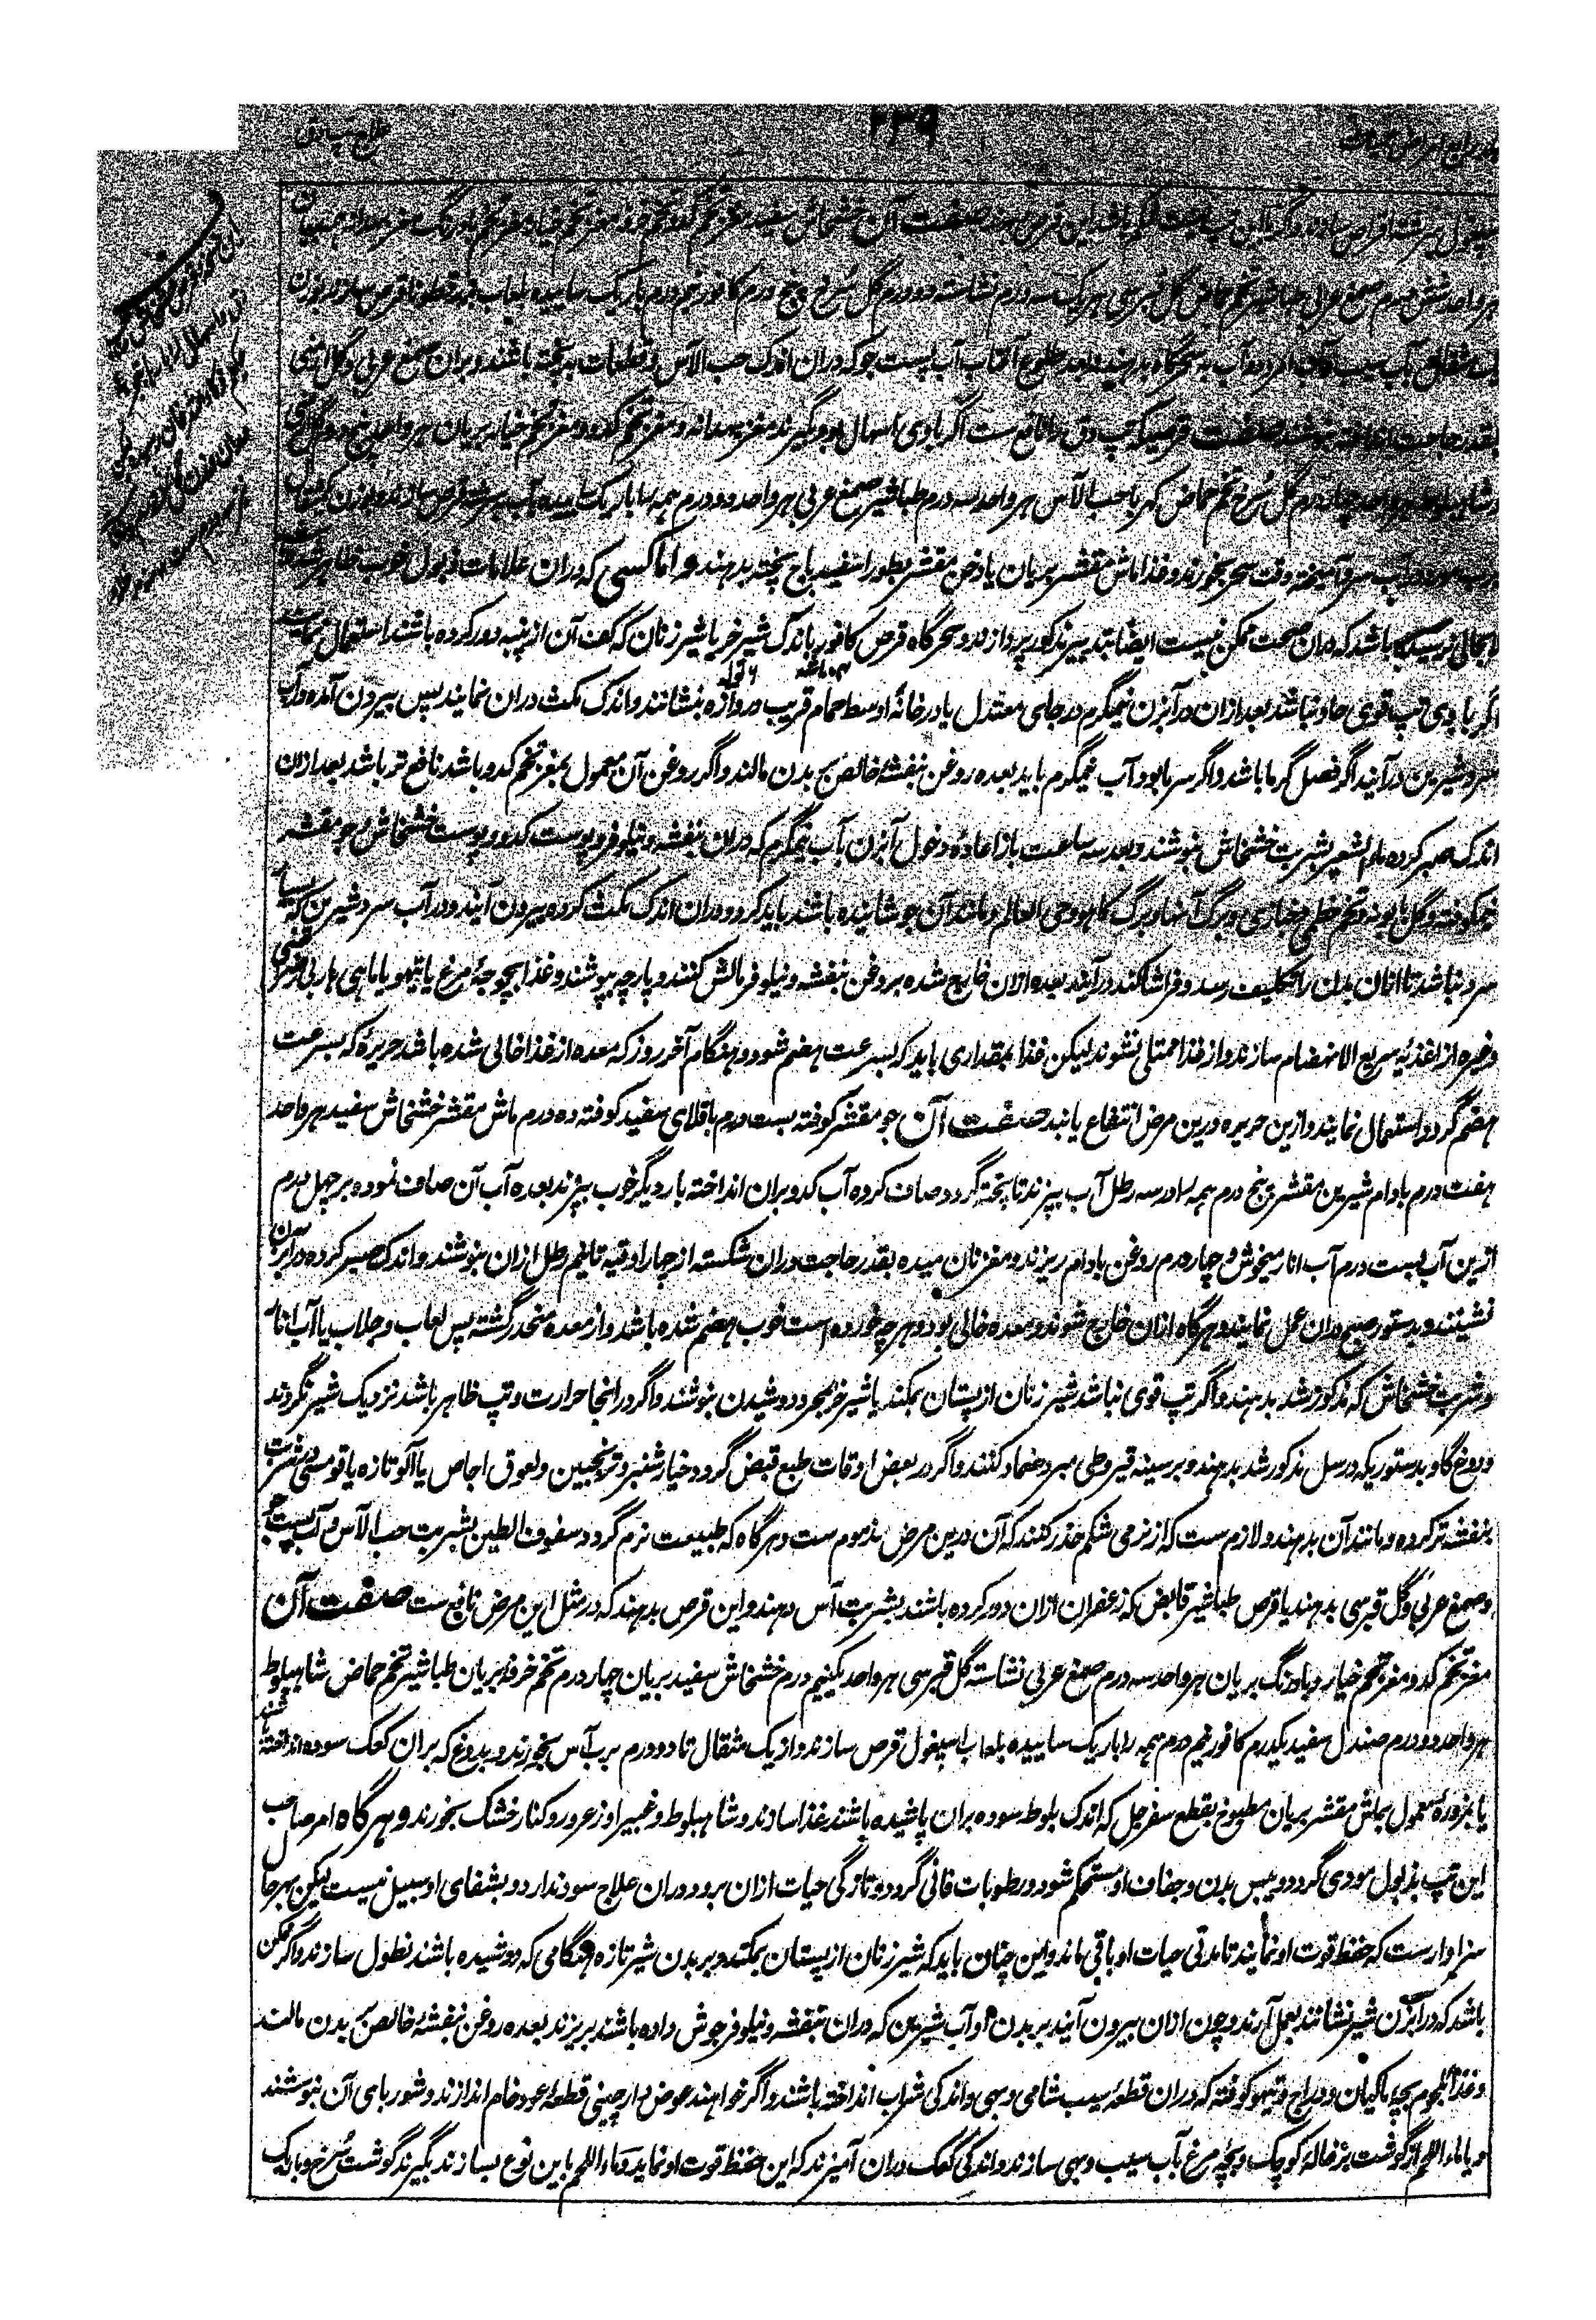 علاج تپ دق
۲۳۹
هر واحد شش درم صمغ عربی طباشیر تخم حماض گل قبرسی هریک سه درم نشاسته دو درم گل سرخ پنج درم کافور نیم درم باریک ساییده بلعاب بزرقطونا قرص سازند بوزن
یک مثقال بآب سیب و آب امرود و آب به سحرگاه بدهند و بعد طلوع آفتاب آب پست جو که دران اندک حب الآس و قطعات به پخته باشند و بران صمغ عربی و گل ارمنی
بقدر حاجت انداخته بنوشند صفت قرصیکه تپ دق را نافع ست اگر با وی اسهال بود بگیرند مغز بهدانه و مغز تخم کدو و مغز تخم خیار بریان هر واحد پنج درم گل ارمنی
و شاه بلوط هر واحد چهار درم گل سرخ تخم حماض کهربا حب الآس هر واحد سه درم طباشیر صمغ عربی هر واحد دو درم همه را باریک ساییده بآب سرشته قرص سازند بوزن یکمثقال
آب سرد آمیخته وقت سحر بخورند و غذا ماش مقشر بریان یا دخن مقشر بطور اسفیدباج پخته بدهند و اما کسی که دران علامات ذبول خوب ظاهر شده
تا بحالی نرسیده باشد که دران صحت ممکن نیست ایضا بتدبیر مذکور پردازند و سحرگاه قرص کافور باندک شیر خر یا شیر زنان که کف آن از پنبه دور کرده باشند استعمال نمایند
اگر با وی تپ قوی حاد نباشد بعد ازان در آبزن نیمگرم در جای معتدل یا در خانهٔ اوسط حمام قریب دروازه بنشانند و اندک مکث دران نمایند پس بیرون آمده در آب
سرد شیرین در آیند اگر فصل گرما باشد و اگر سرما بود آب نیمگرم باید بعده روغن بنفشهٔ خالص بر بدن مالند و اگر روغن آن معمول بمغز تخم کدو باشد نافع تر باشد بعد ازان
اندک صبر کرده ماء الشعیر بشربت خشخاش بنوشند و بعد سه ساعت باز اعادهٔ دخول آبزن بآب نیمگرم که دران بنفشه و نیلوفر و پوست کدو و پوست خشخاش و جو مقشر
نیمکوفته و گل بابونه و تخم خطمی و خبازی و برگ آنها و برگ کاهو و حی العالم و مانند آن جوشانیده باشند باید کرد و دران اندک مکث کرده بیرون آیند و در آب سرد شیرین که بسیار
سرد نباشد تا ازان بدن را تکلیف رسد و فراشا کند در آیند بعده ازان خارج شده بروغن بنفشه و نیلوفر مالش کنند و پارچه بپوشند و غذا بچوجهٔ مرغ یا تیهو یا ماهی هاربی رضراضی
و غیره از اغذیهٔ سریع الانهضام سازند و از غذا ممتلی نشوند لیکن غذا بمقداری باید که بسرعت هضم شود و هنگام آخر روز که معده از غذا خالی شده باشد حریرهٔ که بسرعت
هضم گردد استعمال نمایند و ازین حریره درین مرض انتفاع یابند صفت آن جو مقشر کوفته بست درم باقلای سفید کوفته ده درم ماش مقشر خشخاش سفید هر واحد
هفت درم بادام شیرین مقشر پنج درم همه را در سه رطل آب بپزند تا پخته گردد و صاف کرده آب کدو بران انداخته بار دیگر خوب بپزند بعده آب آن صاف نموده بر چهل درم
ازین آب بست درم آب انار میخوش و چار درم روغن بادام ریزند و مغز نان میده بقدر حاجت دران شکسته از چار اوقیه تا نیم رطل ازان بنوشند و اندک صبر کرده در آبزن
نشینند و بدستور صبح دران عمل نمایند و هرگاه ازان خارج شوند و معده خالی بود و هرچه خورده است خوب هضم شده باشد و از معده منحدر گشته پس لعاب و جلاب یا آب انار
و شربت خشخاش که مذکور شد بدهند و اگر تپ قوی نباشد شیر زنان از پستان بمکند یا شیر خر بمجرد دوشیدن بنوشند و اگر در اینجا حرارت و تپ ظاهر باشد نزدیک شیر نگردند
و دوغ گاو بدستوریکه در سل مذکور شد بدهند و بر سینه قیروطی مبرد ضماد کنند و اگر در بعض اوقات طبع قبض گردد خیارشنبر و ترنجبین و لعوق اجاص یا آلو تازه یا قوسی در شربت
بنفشه تر کرده و مانند آن بدهند و لازم ست که از نرمی شکم حذر کنند که آن درین مرض مذموم ست و هرگاه که طبیعت نرم گردد سفوف الطین بشربت حب الآس و آب پست جو
و صمغ عربی و گل قبرسی بدهند یا قرص طباشیر قابض که زعفران ازان دور کرده باشند بشربت آس دهند و این قرص بدهند که در مثل این مرض نافع ست صفت آن
مغز تخم کدو و مغز تخم خیار و بادرنگ بریان هر واحد سه درم صمغ عربی نشاسته گل قبرسی هر واحد یکنیم درم خشخاش سفید بریان چهار درم تخم خرفه بریان طباشیر تخم حماض شاهبلوط
هر واحد دو درم صندل سفید یکدرم کافور نیم درم همه را باریک ساییده بلعاب اسپغول قرص سازند و از یک مثقال تا دو درم برب آس بخورند و بدوغ که بران کعک سوده انداخته باشند
یا بزورهٔ معمول بماش مقشر بریان مطبوخ بقطع سفرجل که اندک بلوط سوده بران پاشیده باشند غذا سازند و شاهبلوط و غبیرا و زعرور و کنار خشک بخورند و هرگاه امر صاحب
این تپ بذبول مودی گردد و یبس بدن و جفاف او مستحکم شود و رطوبات فانی گردد و تازگی حیات ازان برود دران علاج سود ندارد و بشفای او سبیل نیست لیکن بهرحال
سزاوار ست که حفظ قوت او نمایند تا مدتی حیات او باقی ماند و این چنان باید که شیر زنان از پستان بمکند و بر بدن شیر تازه هنگامی که دوشیده باشند نطول سازند و اگر ممکن
باشد که در آبزن شیر نشانند بعمل آرند و چون ازان بیرون آیند بر بدن او آب شیرین که دران بنفشه و نیلوفر جوش داده باشند بریزند بعده روغن بنفشهٔ خالص بر بدن مالند
و غذا بلحوم بچهٔ ماکیان و دراج و تیهو کوفته که دران قطعهٔ سیب شامی و بهی و اندکی شراب انداخته باشند و اگر خواهند عوض دارچینی قطعهٔ عود خام اندازند و شوربای آن بنوشند
و یا ماء اللحم از گوشت بزغالهٔ کوچک و بچهٔ مرغ بآب سیب و بهی سازند و اندکی کعک دران آمیزند که این حفظ قوت او نماید و ماء اللحم باین نوع بسازند بگیرند گوشت سرخ خوب باریک